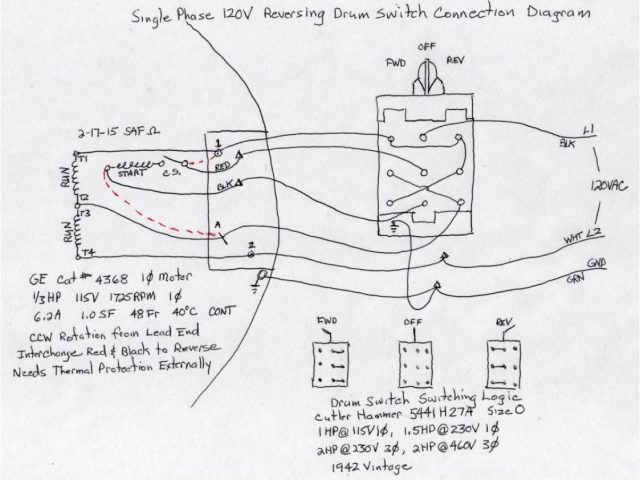 Single Phase 120V Reversing Drum Switch Connection Diagram
OFF
FWD
REV
2-17-15 SAF Ω
T1
RUN
START
C.S.
T2
T3
RUN
T4
1
RED
BLK
A
2
L1
BLK
120VAC
WHT L2
GND
GRN
GE Cat # 4368 1Ø Motor
1/3HP 115V 1725RPM 1Ø
6.2A 1.0SF 48Fr 40°C CONT
CCW Rotation from Lead End
Interchange Red & Black to Reverse
Needs Thermal Protection Externally
FWD
OFF
REV
Drum Switch Switching Logic
Cutler Hammer 5441H27A Size 0
1HP@115V1Ø, 1.5HP@230V 1Ø
2HP@230V 3Ø, 2HP@460V 3Ø
1942 Vintage